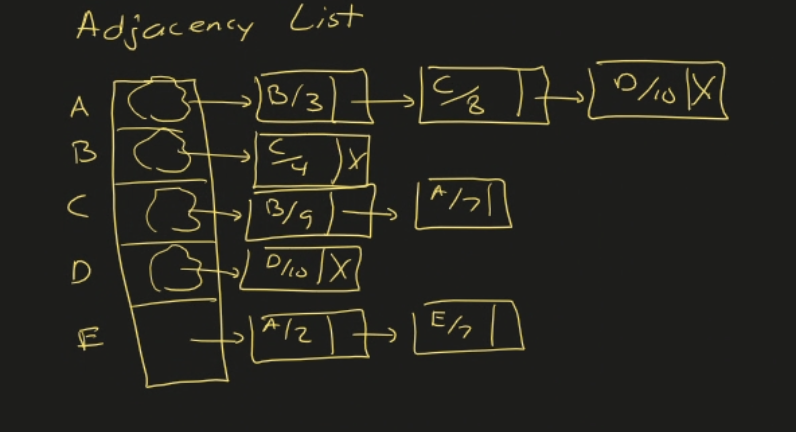 Adjacency List
A B/3 C/8 D/10 X
B C/4 X
C B/9 A/7
D D/10 X
E A/2 E/7